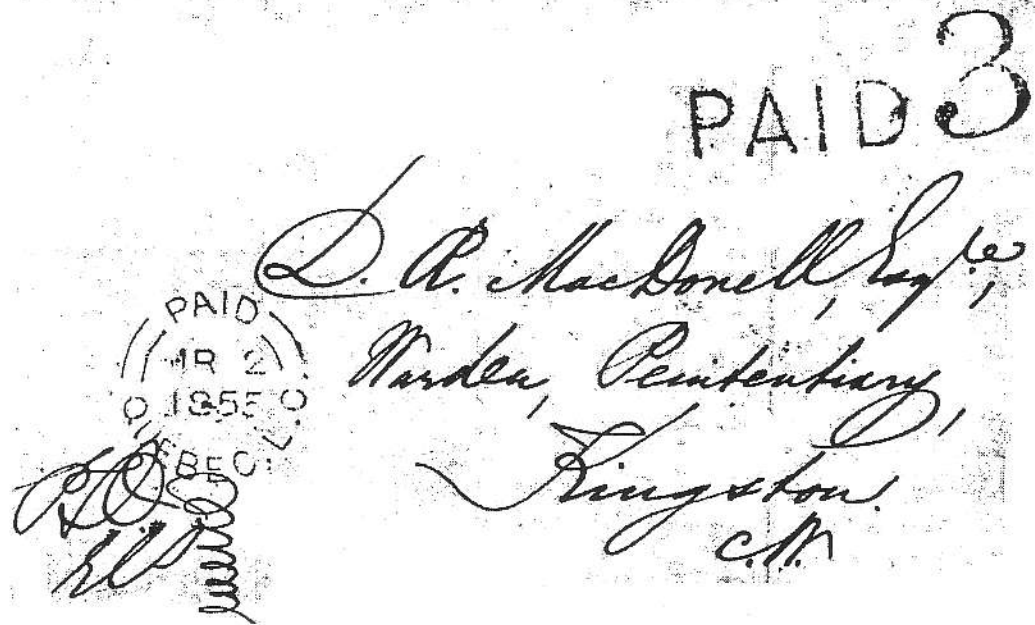 PAID 3
D. A. MacDonell, Esqre,
Warden, Penitentiary,
Kingston.
C.W.
PAID
MR 2
1855
QUEBEC. L.C.